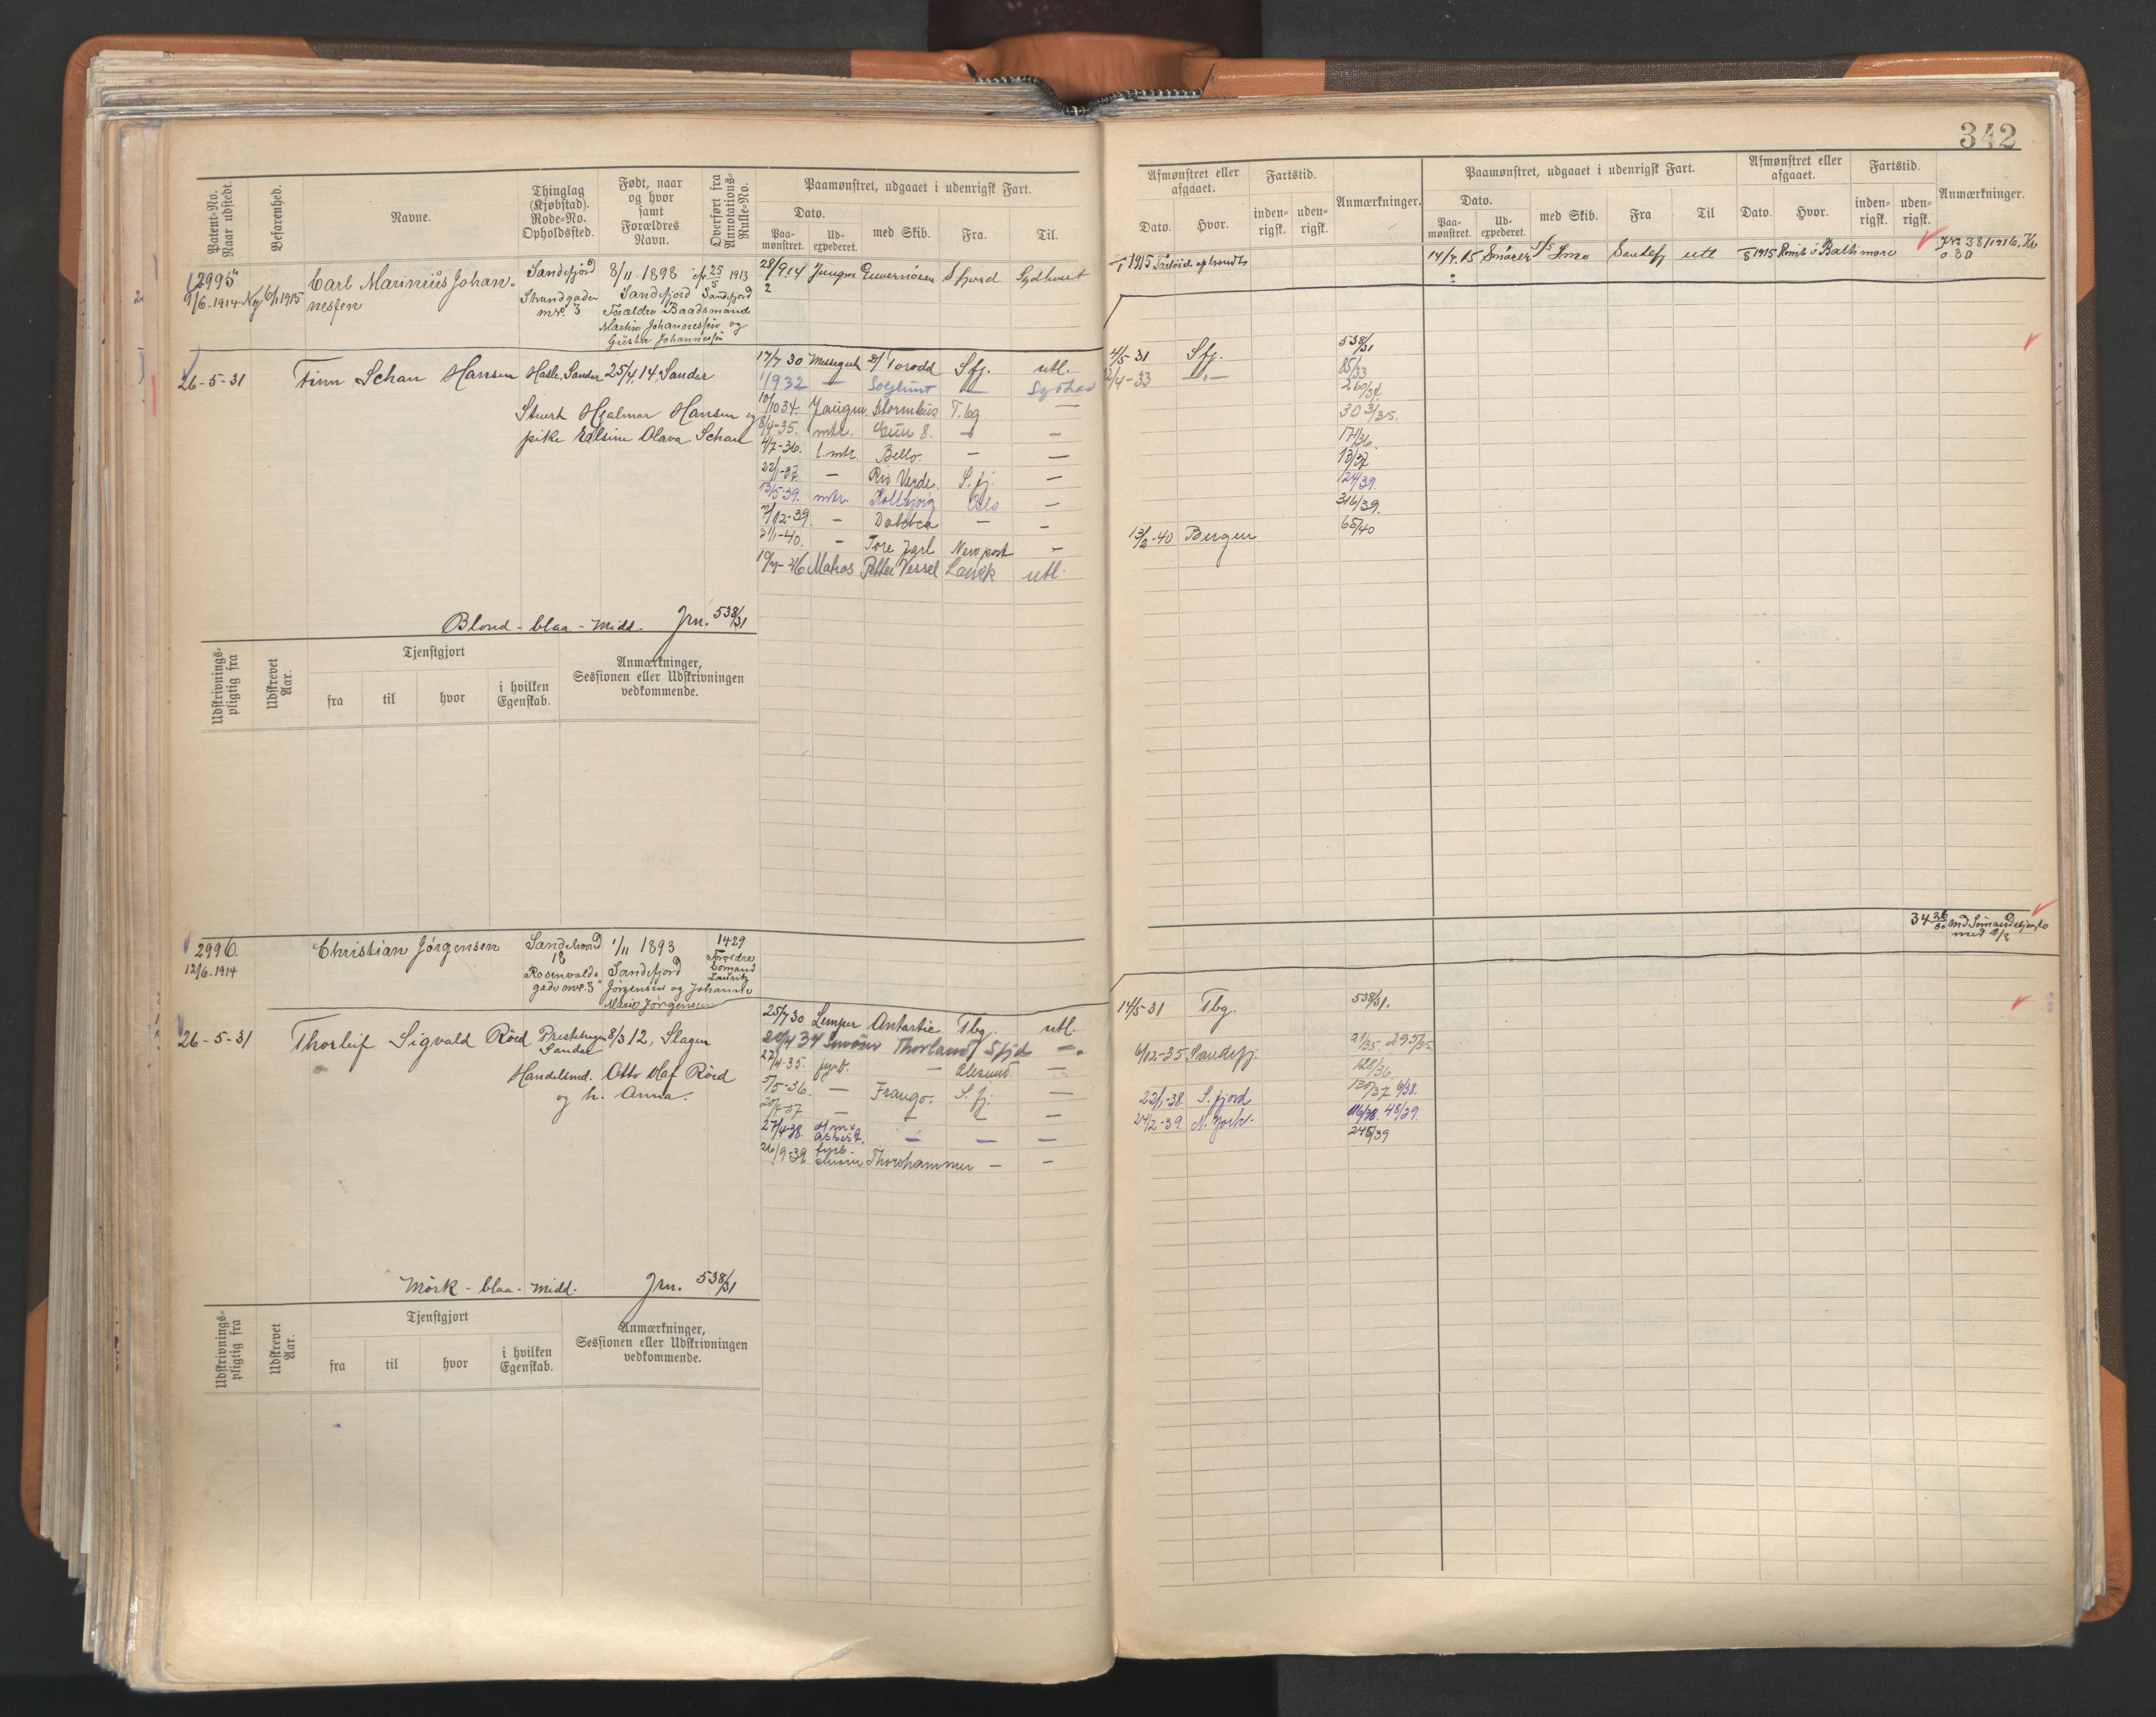 342
Patent-No. Naar udstedt.
Befarenhed.
Navne.
Thinglag (Kjøbstad). Rode-No. Opholdssted.
Født, naar og hvor samt Forældres Navn.
Overført fra Annotations-Rulle-No.
Paamønstret, udgaaet i udenrigsk Fart.
Dato.
Paamønstret.
Udexpederet.
med Skib.
Fra.
Til.
Afmønstret eller afgaaet.
Dato.
Hvor.
Fartstid.
indenrigsk.
udenrigsk.
Anmærkninger.
Paamønstret, udgaaet i udenrigsk Fart.
Dato.
Paamønstret.
Udexpederet.
med Skib.
Fra
Til
Afmønstret eller afgaaet.
Dato.
Hvor.
Fartstid.
indenrigsk.
udenrigsk.
Anmærkninger.
2995
9/6-1914 Ny 6/1 1915
Carl Marinius Johannessen
Sandefjord
Strandgaden nr. 3
8/11 1898
25/5 1913
Sandefjord Sandefjord
Forældre Baadsmand
Martin Johannessen og
28/9 14 Jungm Guvernøren Sfjord Sydhavet
1915
14/7 15 Smører S/S Sandefj utl
1915 Baltimore
26-5-31
Finn Schau Hansen Hasle, Sandar 25/4, 14, Sandar
Stuert Hjalmar Hansen og
pike Elsine Olava Schau
17/7 30 Messegut Torodd Sfj. utl.
1932 — Solglimt — Sydhav
10/10 34. Jungm. T.bg —
8/4-35. mtr. 8. — —
4/7-36. l.mtr. Bello. — —
22/1-37. — Rio Verde. S.fj. —
13/5-39. mtr. Kollbjørg Oslo —
7/12-39. — — —
2/1-40. — Tore Jarl Newport —
Matros Petter Wessel Larvik utl.
4/5-31 Sfj. 538/31
12/4-33 —„— 85/33
303/35.
17/36.
13/37
124/39.
316/39.
13/2-40 Bergen 65/40
Blond - blaa - midd. Jrn. 538/31
Udskrivningspligtig fra
Udskrevet Aar.
Tjenstgjort
fra
til
hvor
i hvilken Egenskab.
Anmærkninger, Sessionen eller Udskrivningen vedkommende.
2996.
12/6-1914
Christian Jørgensen
18
Rosenvolds
gade nr. 3
1/11 1893
Sandefjord
Jørgensen og Johanne
Marie Jørgensen
1429
Forældre
Sømand
Lauritz
26-5-31
Thorleif Sigvald Röed
Sandar
8/3 12, Slagen
Handelsmd. Otto Olaf Röed
og h. Anna.
25/7 30 Lemper Antartic Tbg. utl.
Thorland Sfjd —
27/4-35. fyrb. — Ålesund. —
5/5-36. — Frango. S.fj. —
20/2-37. — — — —
27/4-38. — — —
26/9-39 fyrb. Thorshammer — —
14/5-31 Tbg. 538/31.
6/12-35 Sandefj. 295/35
128/36
130/37 9/38.
22/1-38. S.fjord 48/39.
24/2-39. N. York. 245/39
Mörk - blaa - midd. Jrn. 538/31
Udskrivningspligtig fra
Udskrevet Aar.
Tjenstgjort
fra
til
hvor
i hvilken Egenskab.
Anmærkninger, Sessionen eller Udskrivningen vedkommende.